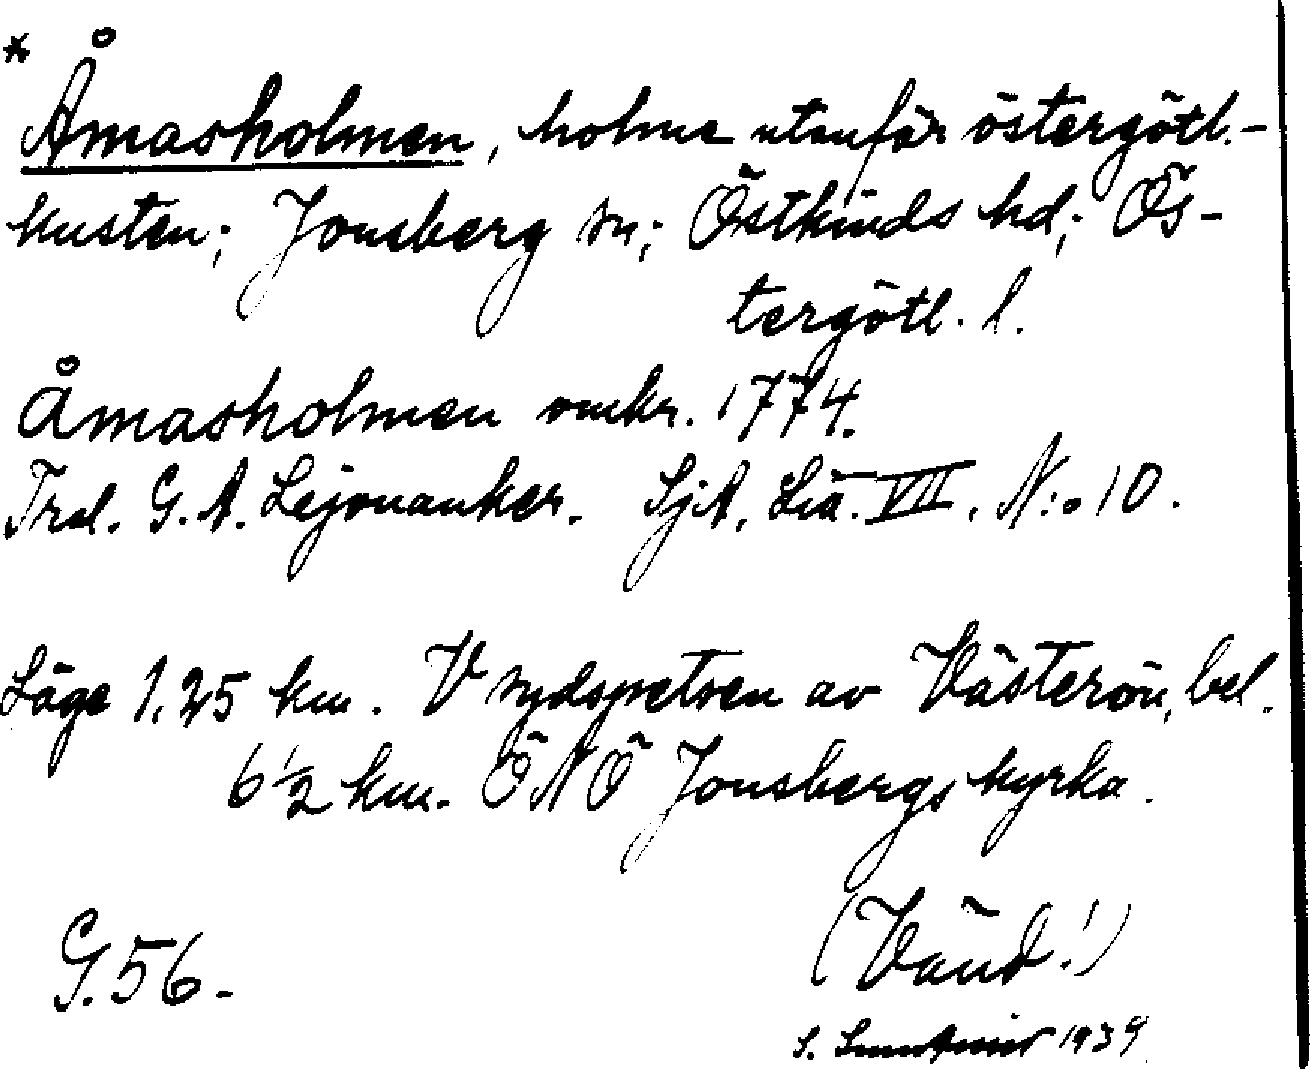 * Åmasholmen, holme utanför östergötl.-
kusten; Jonsberg sn; Östkinds hd; Ös-
tergötl. l.
Åmasholmen omkr. 1774.
Trol. G. A. Lejonanker. SjA, Lia. VII, N:o 10.
Läge 1,25 km. V sydspetsen av Västerön, bel.
6 1/2 km. ÖNÖ Jonsbergs kyrka.
G. 56.
(Vänd!)
S. 1939